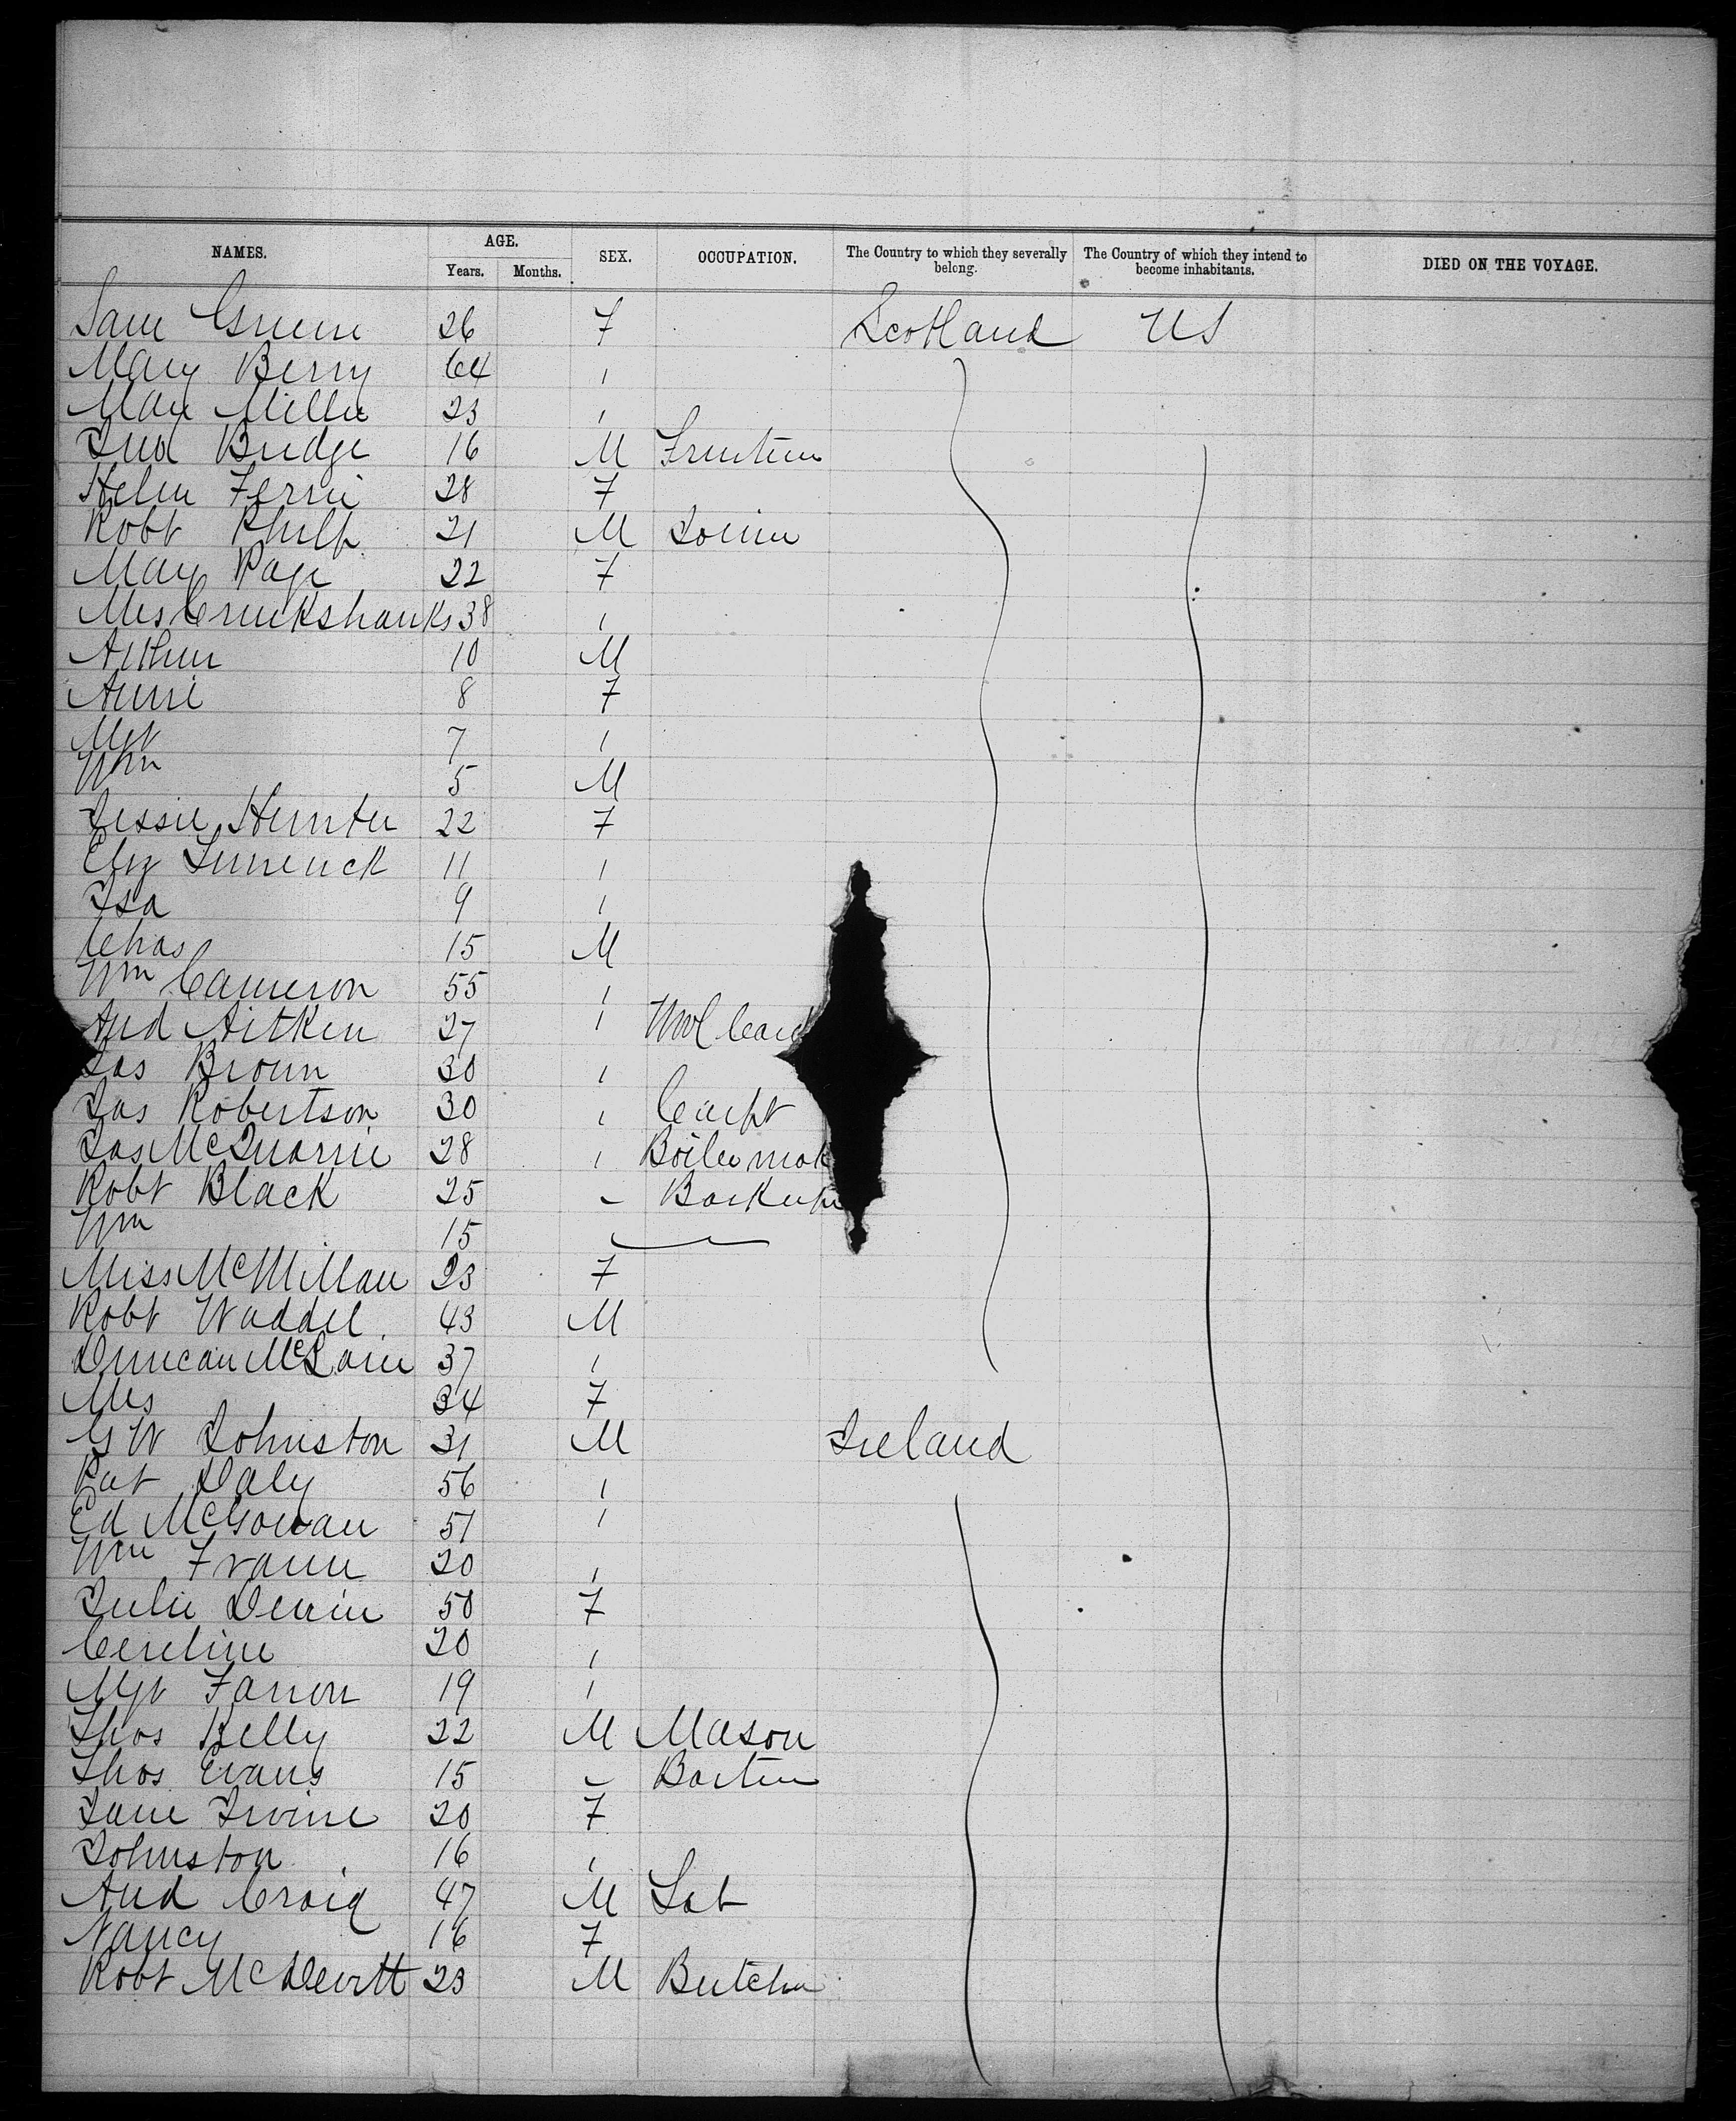 NAMES. AGE. SEX. OCCUPATION. The Country to which they severally belong. The Country of which they intend to become inhabitants. DIED ON THE VOYAGE.
Years. Months.
Green 26 F Scotland US
Mary Berry 64 "
Mary Miller 23 "
Bridge 16 M
Helen Ferrie 28 F
Robt Philp 21 M Joiner
Mary Page 22 F
Mrs Cruickshanks 38 "
Arthur 10 M
Annie 8 F
Mgt 7 "
Wm 5 M
Jessie Hunter 22 F
Eliz 11 "
Isa 9 "
Chas 15 M
Wm Cameron 55 "
And Aitken 27 "
Jas Brown 30 "
Jas Robertson 30 " Carpt
Jas McQuarrie 28 " Boilermak
Robt Black 25 " Barkeepe
Wm 15
Miss McMillan 23 F
Robt Waddel 43 M
Duncan 37 "
Mrs 34 F
G W Johnston 31 M Ireland
Pat Daly 56 "
Ed McGowan 51 "
Wm 20 "
Julie 50 F
20 "
Mgt Farron 19 "
Thos Kelly 22 M Mason
Thos Evans 15 "
Jane Irvine 20 F
Johnston 16 "
And Craig 47 M Lab
Nancy 16 F
Robt McDevitt 23 M Butcher